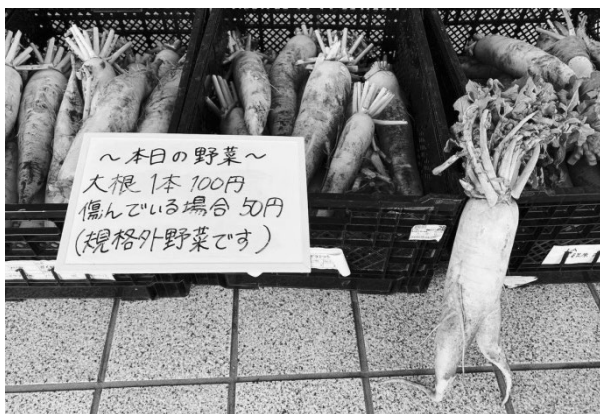 ～本日の野菜～
大根 1本 100円
傷んでいる場合 50円
(規格外野菜です)